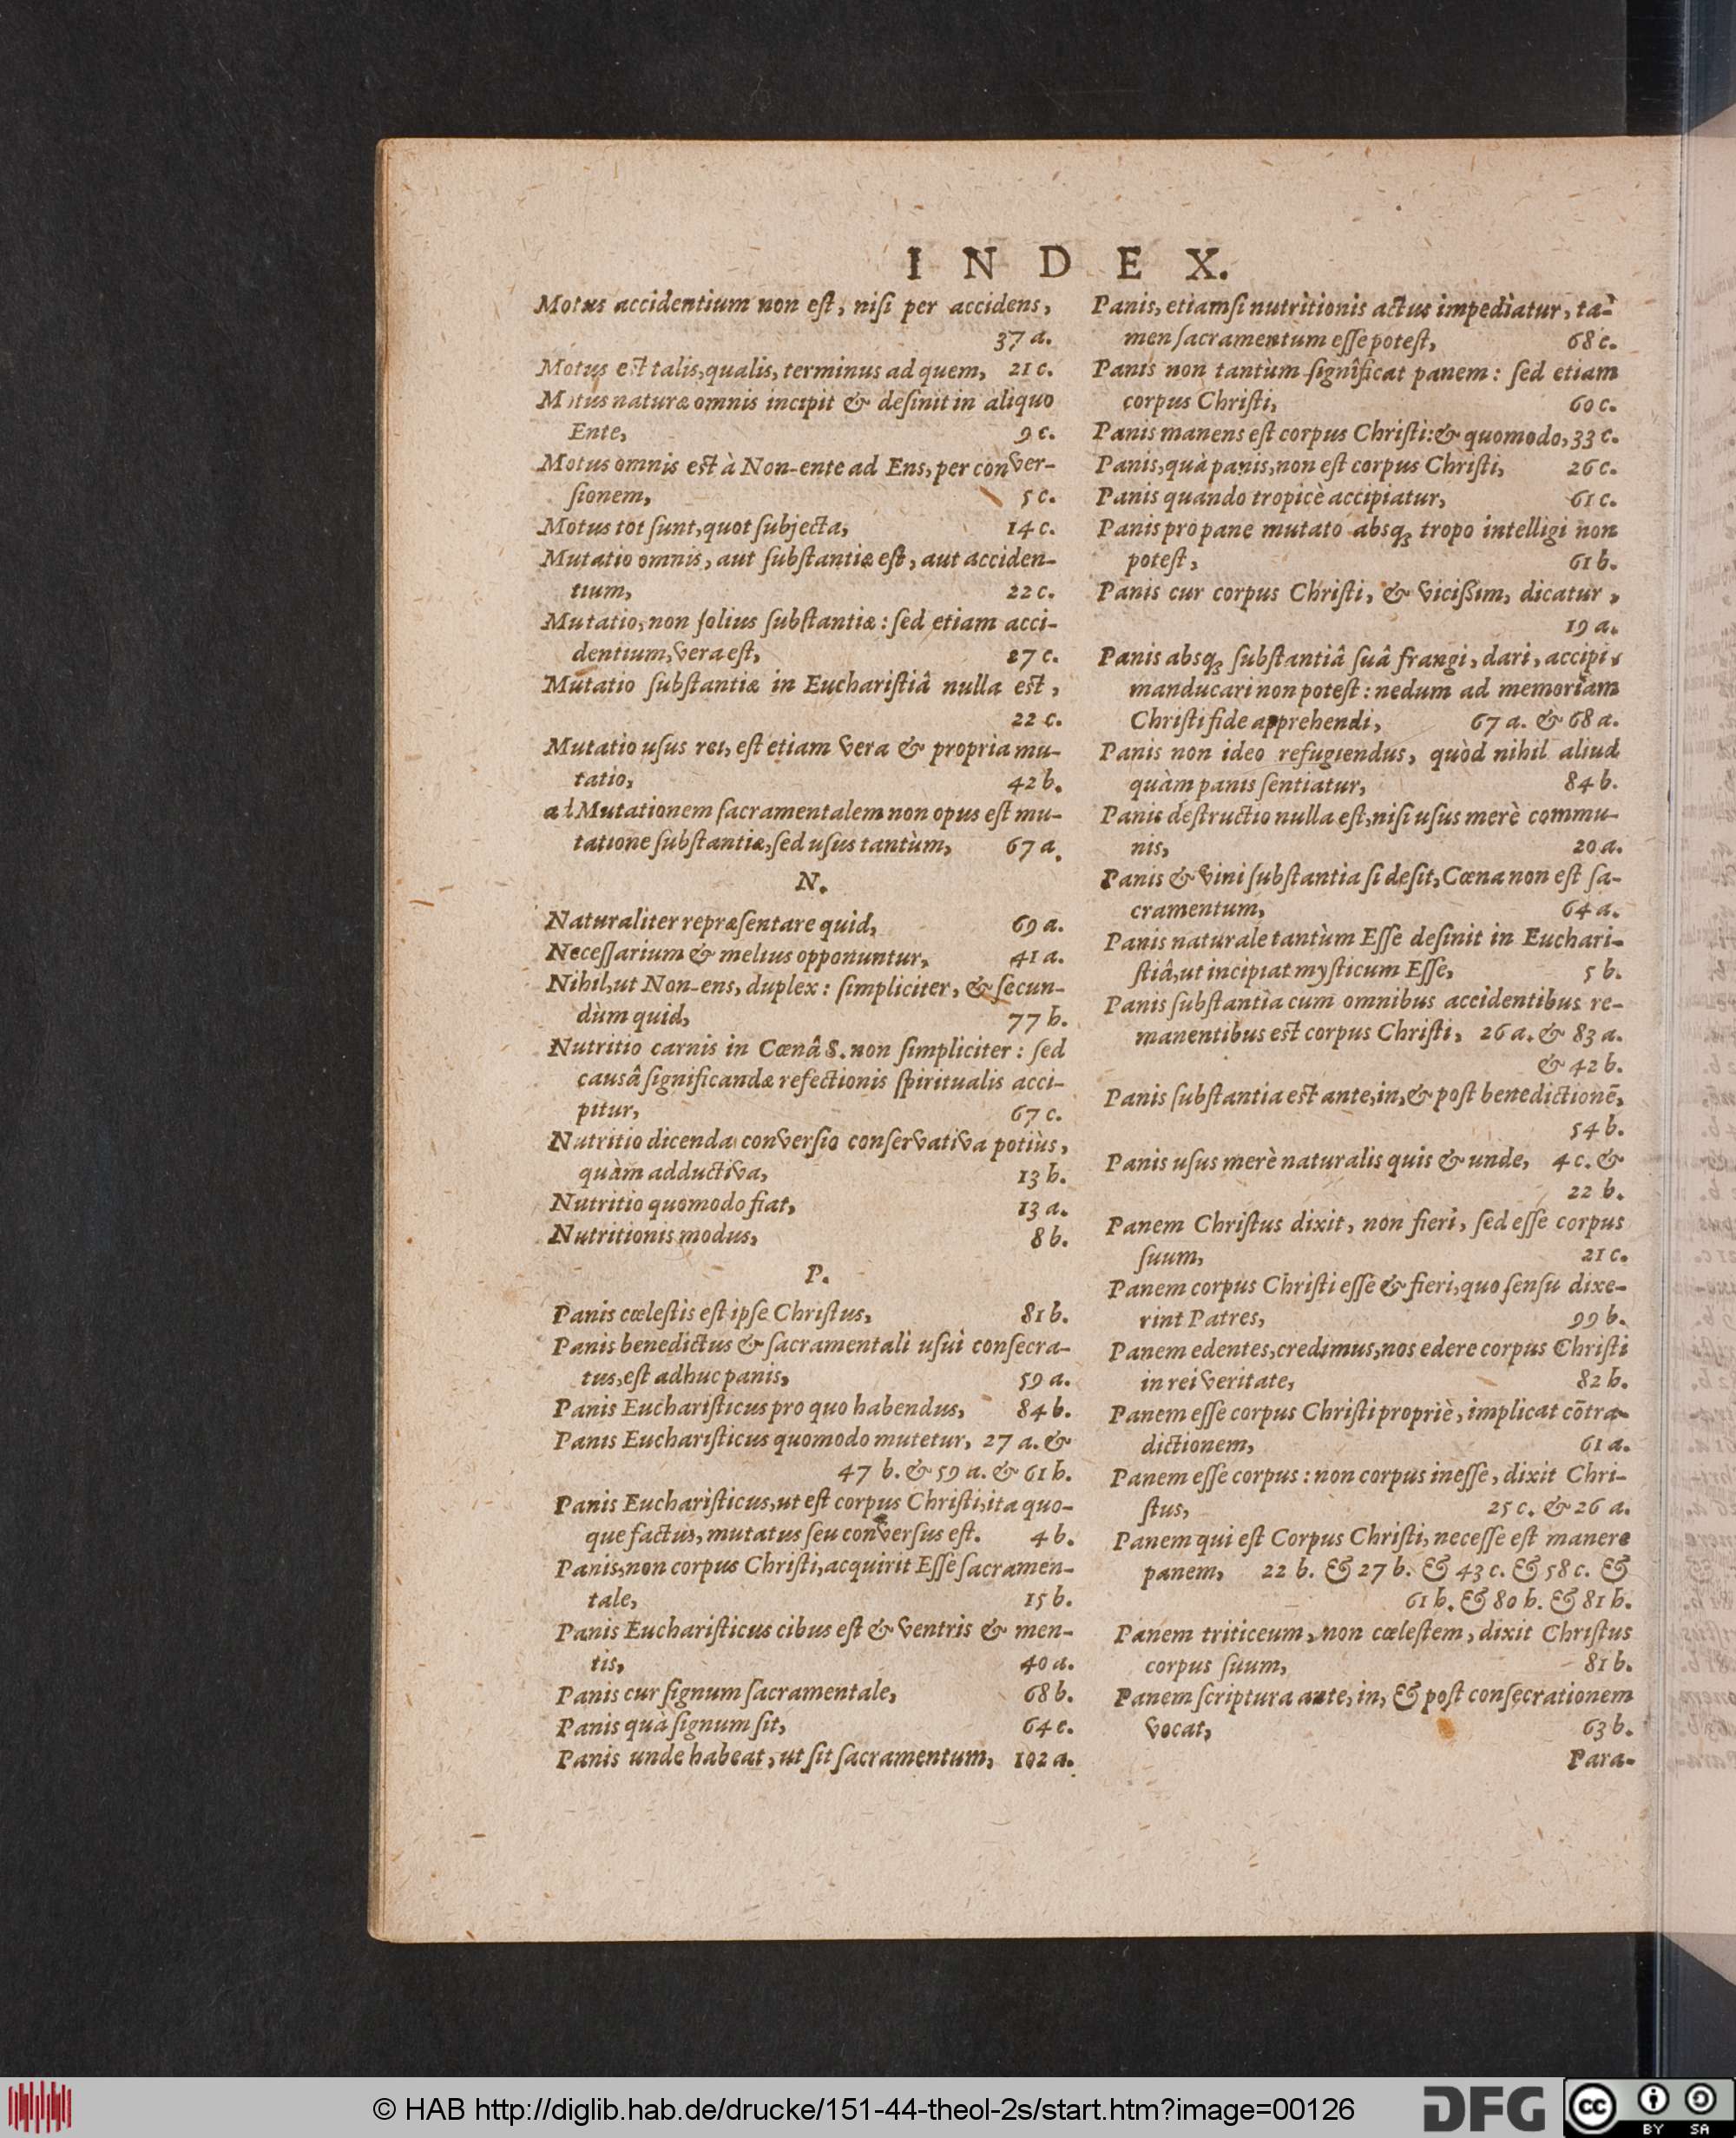 INDEX.
Motus accidentium non eſt, niſi per accidens,
37 a.
Motus eſt talis, qualis, terminus ad quem, 21 c.
Motus naturæ omnis incipit & deſinit in aliquo
Ente, 9 c.
Motus omnis eſt à Non-ente ad Ens, per conver-
ſionem, 5 c.
Motus tot ſunt, quot ſubjecta, 14 c.
Mutatio omnis, aut ſubſtantiæ eſt, aut acciden-
tium, 22 c.
Mutatio, non ſolius ſubſtantiæ: ſed etiam acci-
dentium, vera eſt, 27 c.
Mutatio ſubſtantiæ in Euchariſtiâ nulla eſt,
22 c.
Mutatio uſus rei, eſt etiam vera & propria mu-
tatio, 42 b.
ad Mutationem ſacramentalem non opus eſt mu-
tatione ſubſtantiæ, ſed uſus tantùm, 67 a.
N.
Naturaliter repræſentare quid, 69 a.
Neceſſarium & melius opponuntur, 41 a.
Nihil, ut Non-ens, duplex: ſimpliciter, & ſecun-
dùm quid, 77 b.
Nutritio carnis in Cœnâ S. non ſimpliciter: ſed
causâ ſignificandæ refectionis ſpiritualis acci-
pitur, 67 c.
Nutritio dicenda converſio conſervativa potiùs,
quàm adductiva, 13 b.
Nutritio quomodo fiat, 13 a.
Nutritionis modus, 8 b.
P.
Panis cœleſtis eſt ipſe Chriſtus, 81 b.
Panis benedictus & ſacramentali uſui conſecra-
tus, eſt adhuc panis, 59 a.
Panis Euchariſticus pro quo habendus, 84 b.
Panis Euchariſticus quomodo mutetur, 27 a. &
47 b. & 59 a. & 61 b.
Panis Euchariſticus, ut eſt corpus Chriſti, ita quo-
que factus, mutatus ſeu converſus eſt. 4 b.
Panis, non corpus Chriſti, acquirit Eſſe ſacramen-
tale, 15 b.
Panis Euchariſticus cibus eſt & ventris & men-
tis, 40 a.
Panis cur ſignum ſacramentale, 68 b.
Panis quà ſignum ſit, 64 c.
Panis unde habeat, ut ſit ſacramentum, 102 a.
Panis, etiamſi nutritionis actus impediatur, ta-
men ſacramentum eſſe poteſt, 68 c.
Panis non tantùm ſignificat panem: ſed etiam
corpus Chriſti, 60 c.
Panis manens eſt corpus Chriſti: & quomodo, 33 c.
Panis, quà panis, non eſt corpus Chriſti, 26 c.
Panis quando tropicè accipiatur, 61 c.
Panis pro pane mutato absq; tropo intelligi non
poteſt, 61 b.
Panis cur corpus Chriſti, & vicißim, dicatur,
19 a.
Panis absq; ſubſtantiâ ſuâ frangi, dari, accipi,
manducari non poteſt: nedum ad memoriam
Chriſti fide apprehendi, 67 a. & 68 a.
Panis non ideo refugiendus, quòd nihil aliud
quàm panis ſentiatur, 84 b.
Panis deſtructio nulla eſt, niſi uſus merè commu-
nis, 20 a.
Panis & vini ſubſtantia ſi deſit, Cœna non eſt ſa-
cramentum, 64 a.
Panis naturale tantùm Eſſe deſinit in Euchari-
ſtiâ, ut incipiat myſticum Eſſe, 5 b.
Panis ſubſtantia cum omnibus accidentibus re-
manentibus eſt corpus Chriſti, 26 a. & 83 a.
& 42 b.
Panis ſubſtantia eſt ante, in, & poſt benedictionē,
54 b.
Panis uſus merè naturalis quis & unde, 4 c. &
22 b.
Panem Chriſtus dixit, non fieri, ſed eſſe corpus
ſuum, 21 c.
Panem corpus Chriſti eſſe & fieri, quo ſenſu dixe-
rint Patres, 99 b.
Panem edentes, credimus, nos edere corpus Chriſti
in rei veritate, 82 b.
Panem eſſe corpus Chriſti propriè, implicat cōtra-
dictionem, 61 a.
Panem eſſe corpus: non corpus ineſſe, dixit Chri-
ſtus, 25 c. & 26 a.
Panem qui eſt Corpus Chriſti, neceſſe eſt manere
panem, 22 b. & 27 b. & 43 c. & 58 c. &
61 b. & 80 b. & 81 b.
Panem triticeum, non cœleſtem, dixit Chriſtus
corpus ſuum, 81 b.
Panem ſcriptura ante, in, & poſt conſecrationem
vocat, 63 b.
Para-
© HAB http://diglib.hab.de/drucke/151-44-theol-2s/start.htm?image=00126
DFG
cc BY SA